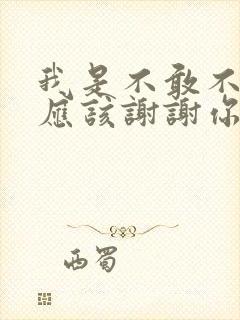 我是不敢不
應該謝謝你
西蜀